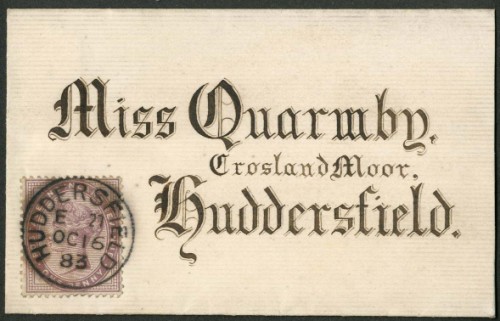 Miss Quarmby.
Crosland Moor.
Huddersfield.
HUDDERSFIELD
OC 16
83